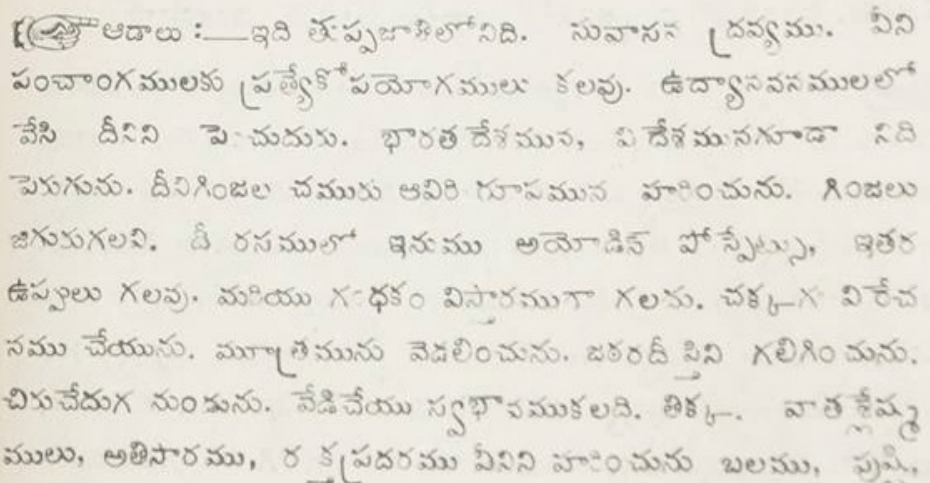 ఆడాలు :— ఇది తుప్పజాతిలోనిది. సువాసన ద్రవ్యము. వీని
పంచాంగములకు ప్రత్యేకోపయోగములు కలవు. ఉద్యానవనములలో
వేసి దీనిని పెంచుదురు. భారత దేశమున, విదేశమునగూడా నిది
పెరుగును. దీనిగింజల చమురు ఆవిరి రూపమున హరించును. గింజలు
జిగురుగలవి. దీ రసములో ఇనుము అయోడిన్ పోస్ఫేట్సు, ఇతర
ఉప్పులు గలవు. మరియు గంధకం విస్తారముగా గలదు. చక్కగ విరేచ
నము చేయును. మూత్రమును వెడలించును. జఠరదీప్తిని గలిగించును.
చిరుచేదుగ నుండును. వేడిచేయు స్వభావముకలది. తిక్క. వాతశ్లేష్మ
ములు, అతిసారము, రక్తప్రదరము వీనిని హరించును బలము, పుష్టి,